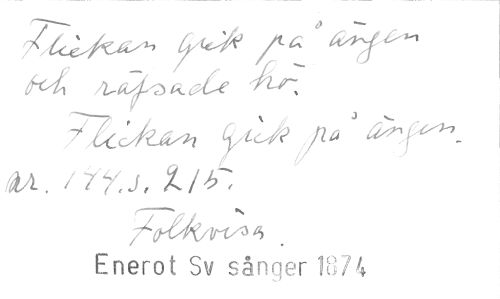 Flickan gick på ängen
och räfsade hö.
Flickan gick på ängen.
nr. 144.s. 215.
Folkvisa.
Enerot Sv sånger 1874